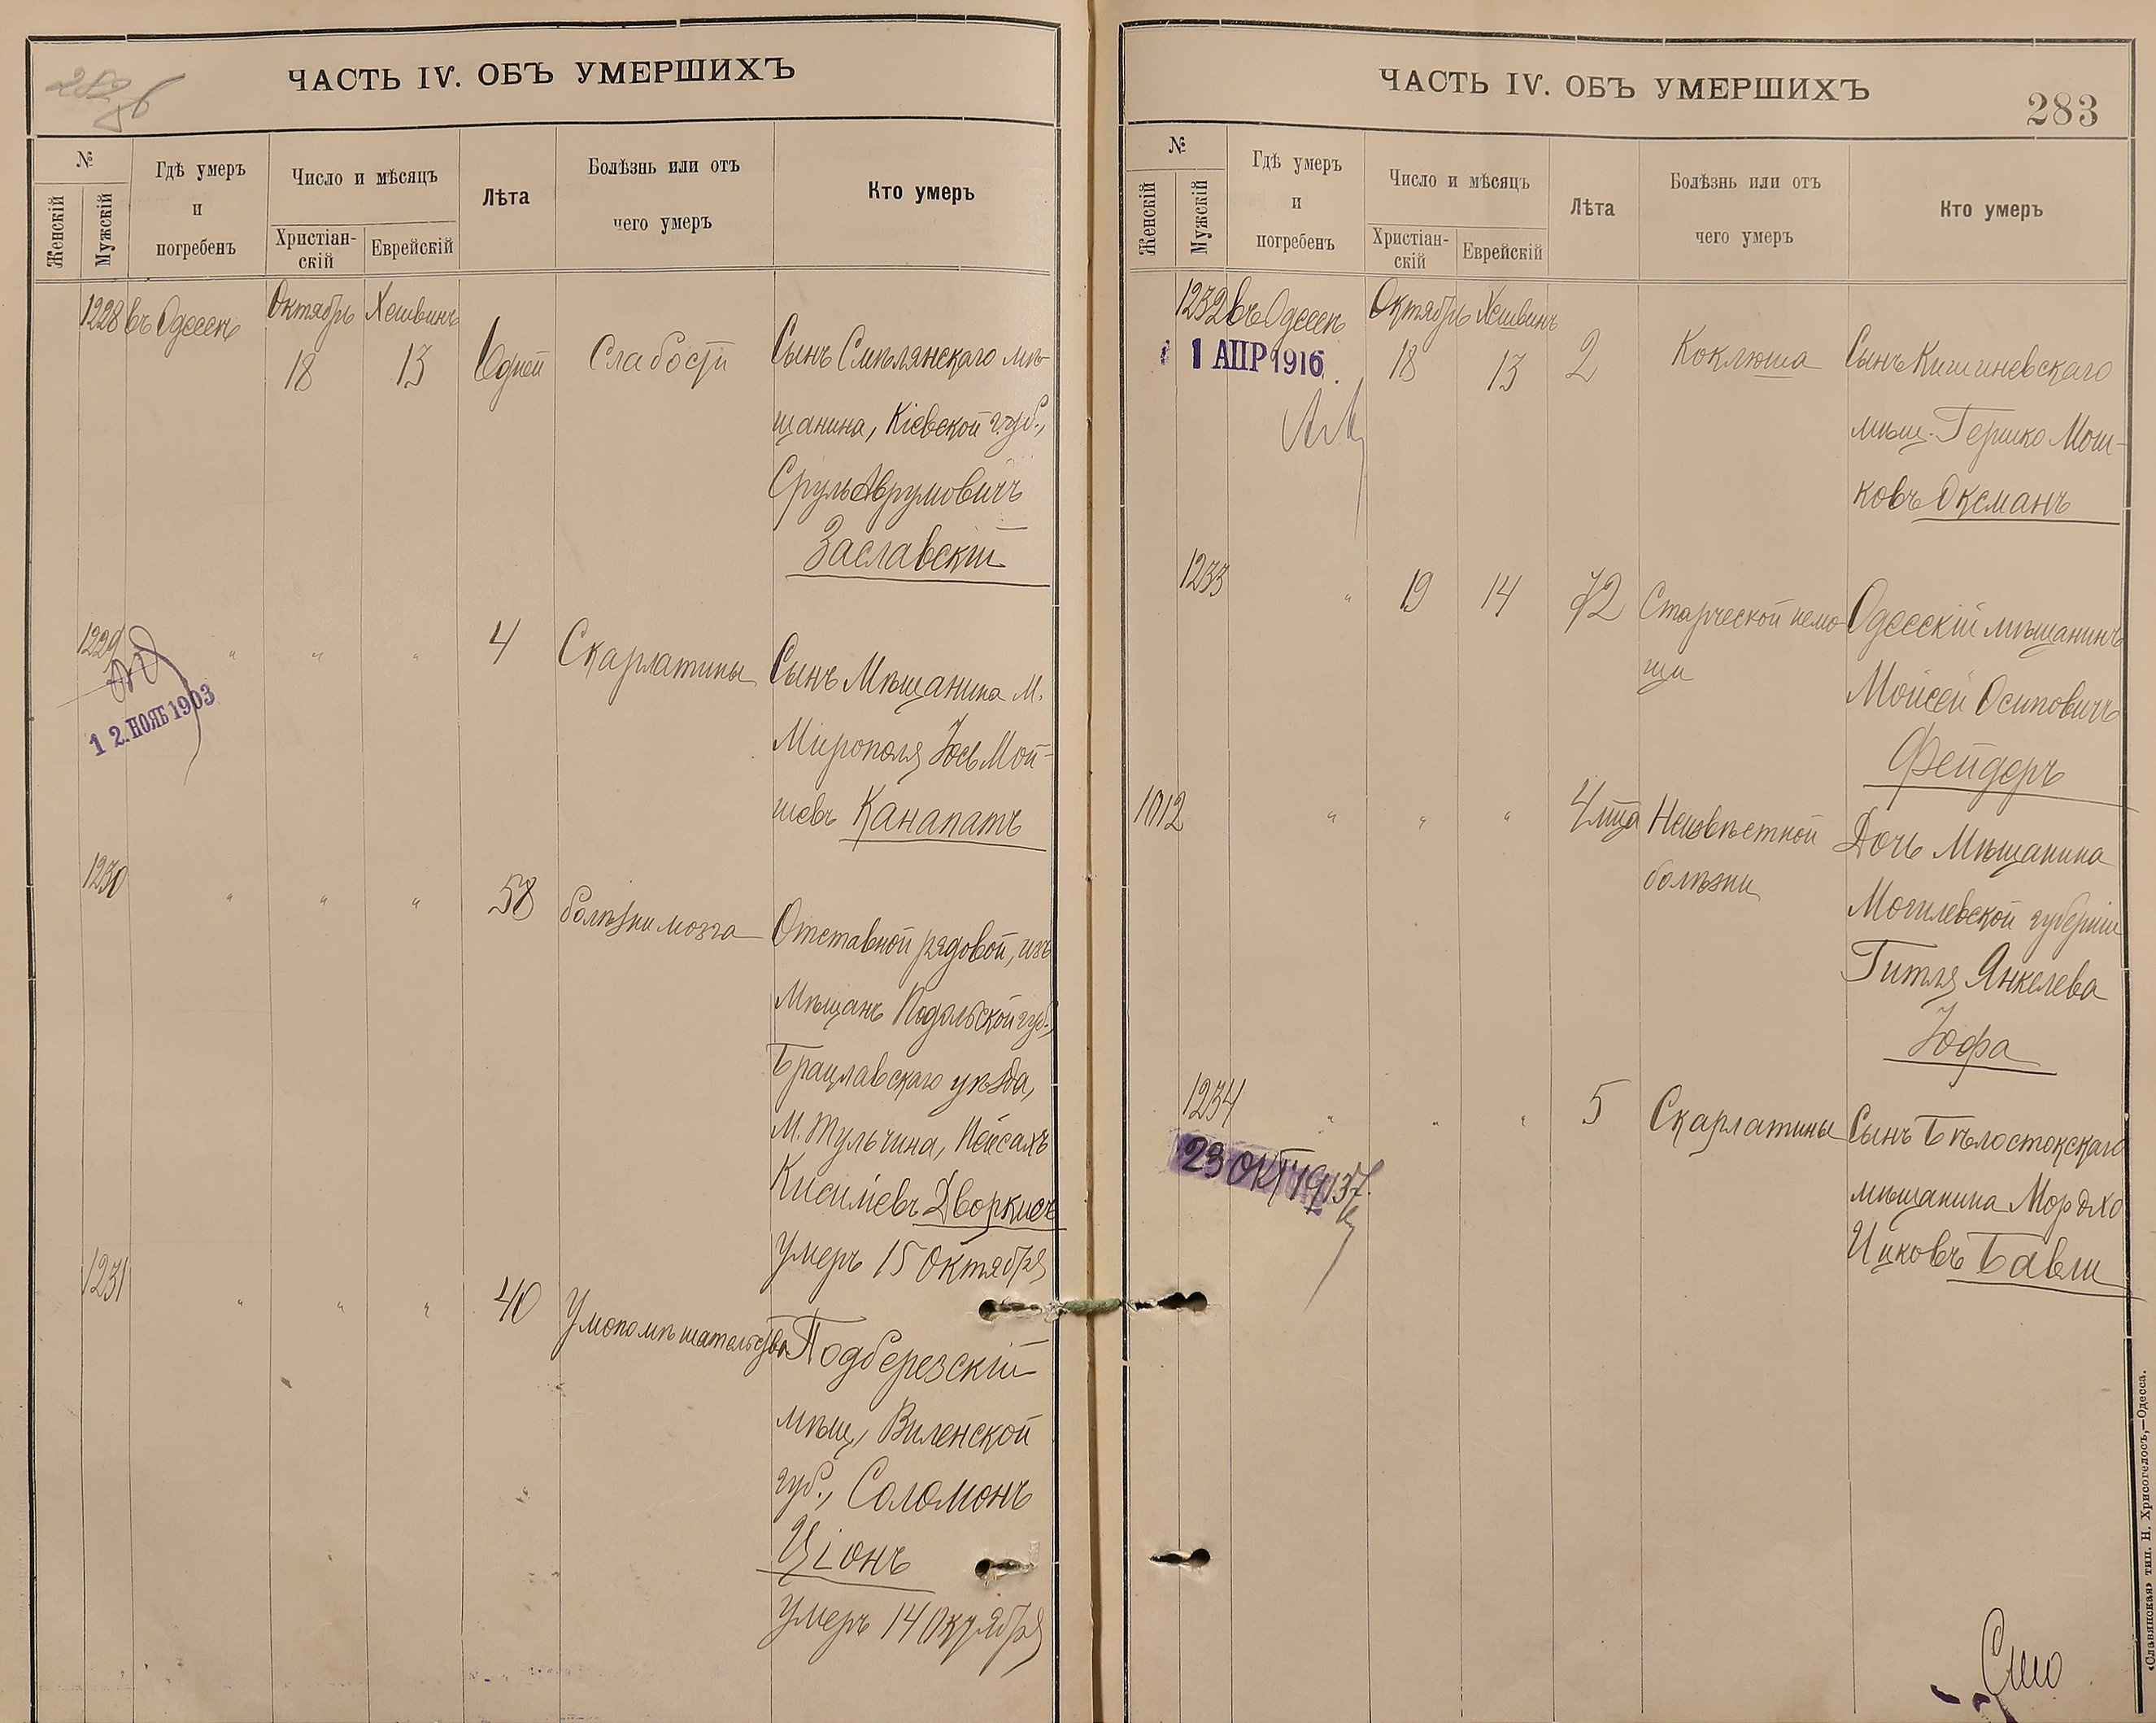 282 об
ЧАСТЬ IV. ОБЪ УМЕРШИХЪ
№
Женскій
Мужскій
Гдѣ умеръ
и
погребенъ
Число и мѣсяцъ
Христіан-
скій
Еврейскій
Лѣта
Болѣзнь или отъ
чего умеръ
Кто умеръ
1228 въ Одессѣ Октябрь 18 Хешвинъ 13 дней Слабости
Сынъ Смѣлянскаго мѣ-
щанина, Кіевской губ.,
Сруль Аврумовичъ
Заславскій
1229 " " " 4 Скарлатины
Сынъ Мѣщанина м.
Мирополя Іось Мой-
шевъ Канапатъ
12. НОЯБ 1903
1230 " " " 58 болѣзни мозга
Отставной рядовой, изъ
Мѣщанъ Подольской губ.,
Брацлавскаго уѣзда,
М. Тульчина, Пейсахъ
Кисилевъ Дворкисъ
умеръ 15 Октября
1231 " " " 40 Умопомѣшательства
Подберезскій
мѣщ., Виленской
губ., Соломонъ
Ціонъ
умеръ 14 Октября
ЧАСТЬ IV. ОБЪ УМЕРШИХЪ
283
№
Женскій
Мужскій
Гдѣ умеръ
и
погребенъ
Число и мѣсяцъ
Христіан-
скій
Еврейскій
Лѣта
Болѣзнь или отъ
чего умеръ
Кто умеръ
1232 въ Одессѣ Октябрь 18 Хешвинъ 13 2 Коклюша
1 АПР 1916
Сынъ Кишиневскаго
мѣщ. Гершко Мош-
ковъ Оксманъ
1233 " 19 14 72 Старческой немо-
щи
Одесскій мѣщанинъ
Мойсей Осиповичъ
Фейдеръ
1012 " " " 4 мца Неизвѣстной
болѣзни
Дочь Мѣщанина
Могилевской губерніи
Гитля Янкелева
Іофа
1234 " " " 5 Скарлатины
23 ОКТ 1913
Сынъ Бѣлостокскаго
мѣщанина Мордхо
Ицковъ Бавли
«Славянская» тип. Н. Хрисогелосъ,—Одесса.